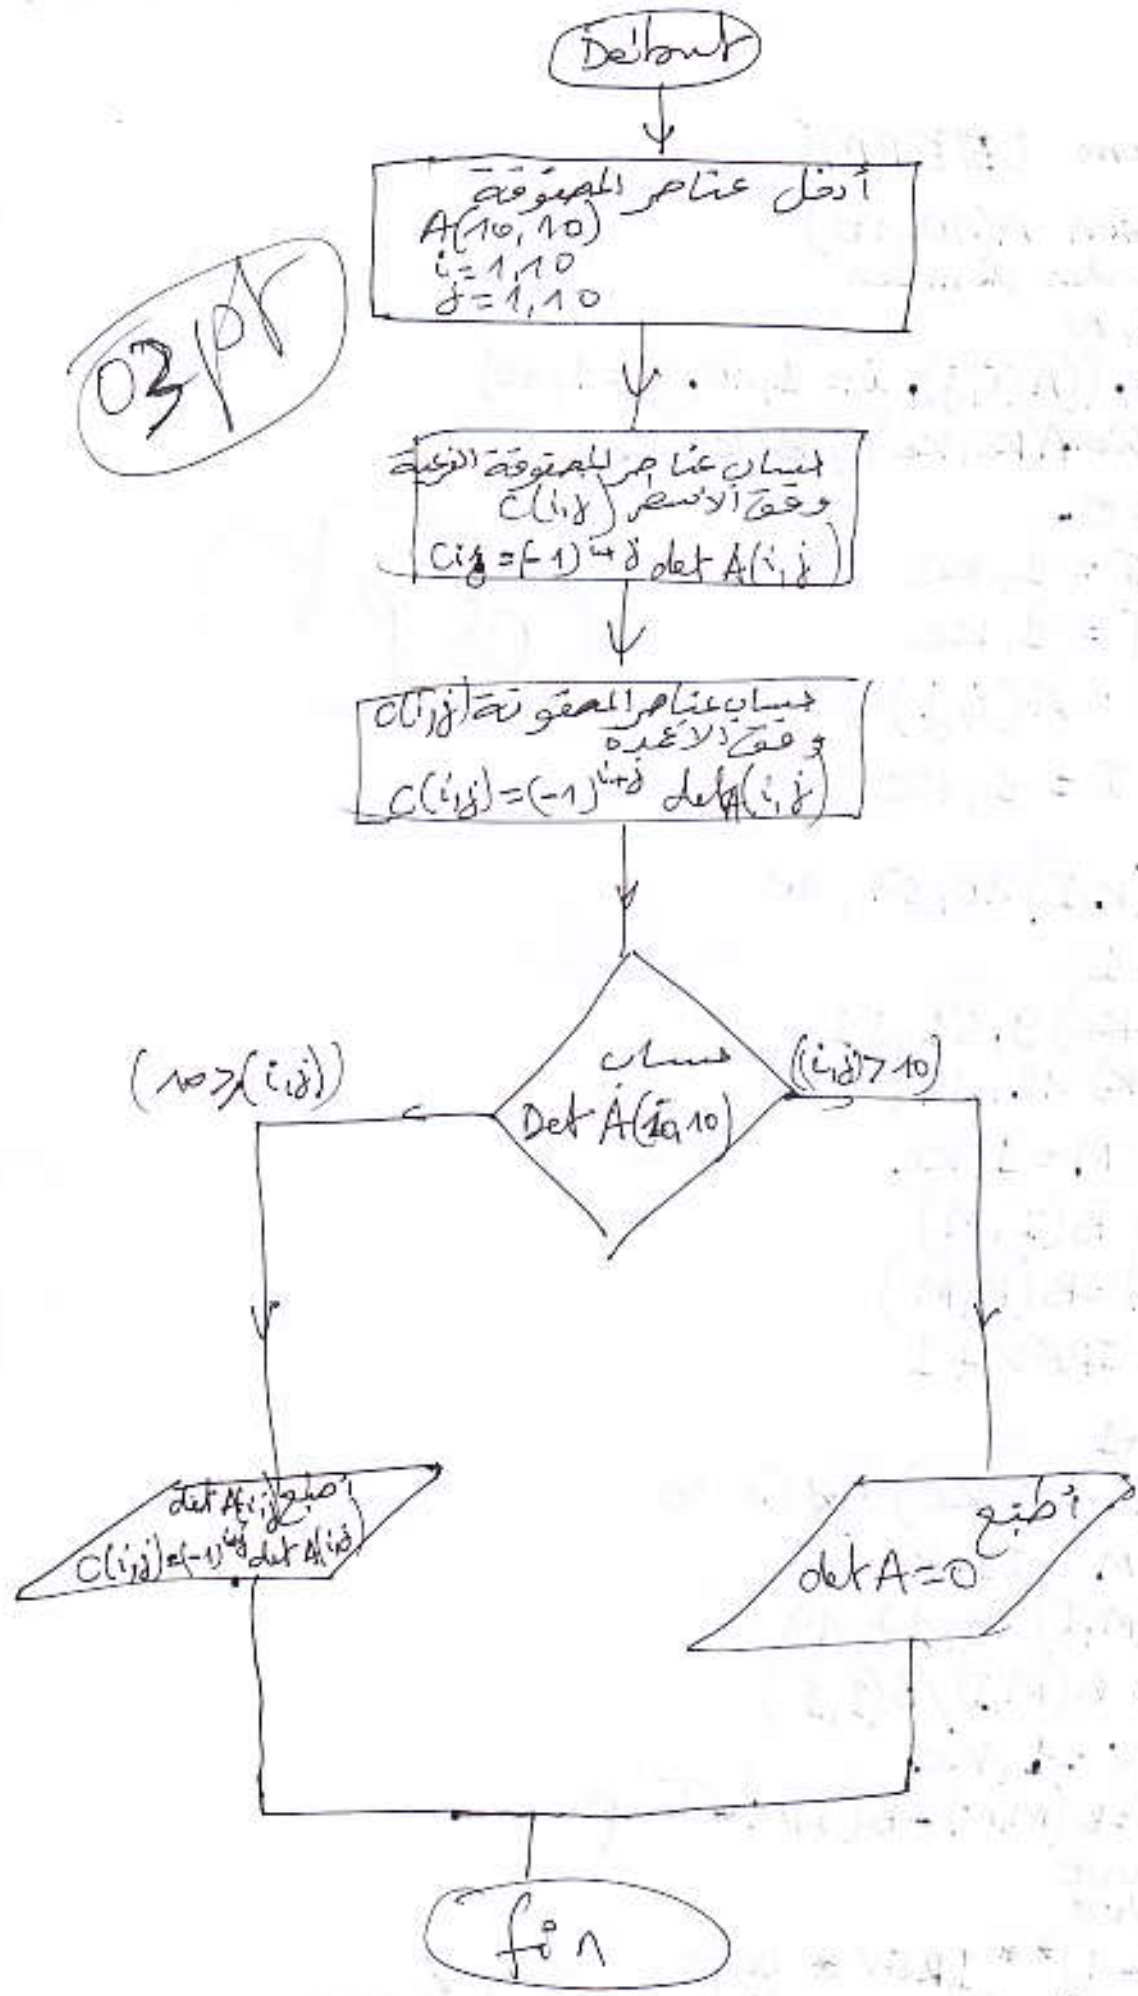 Début
أدخل عناصر المصفوفة
A(10,10)
i=1,10
j=1,10
03 pt
حساب عناصر المصفوفة الفرعية
وفق الأسطر C(i,j)
Cij=(-1)^i+j det A(i,j)
حساب عناصر المصفوفة C(i,j)
وفق الأعمدة
C(i,j)=(-1)^i+j det A(i,j)
حساب
Det A(10,10)
(10≥(i,j))
((i,j)>10)
أطبع det A(i,j)
C(i,j)=(-1)^i+j det A(i,j)
أطبع
det A=0
fin